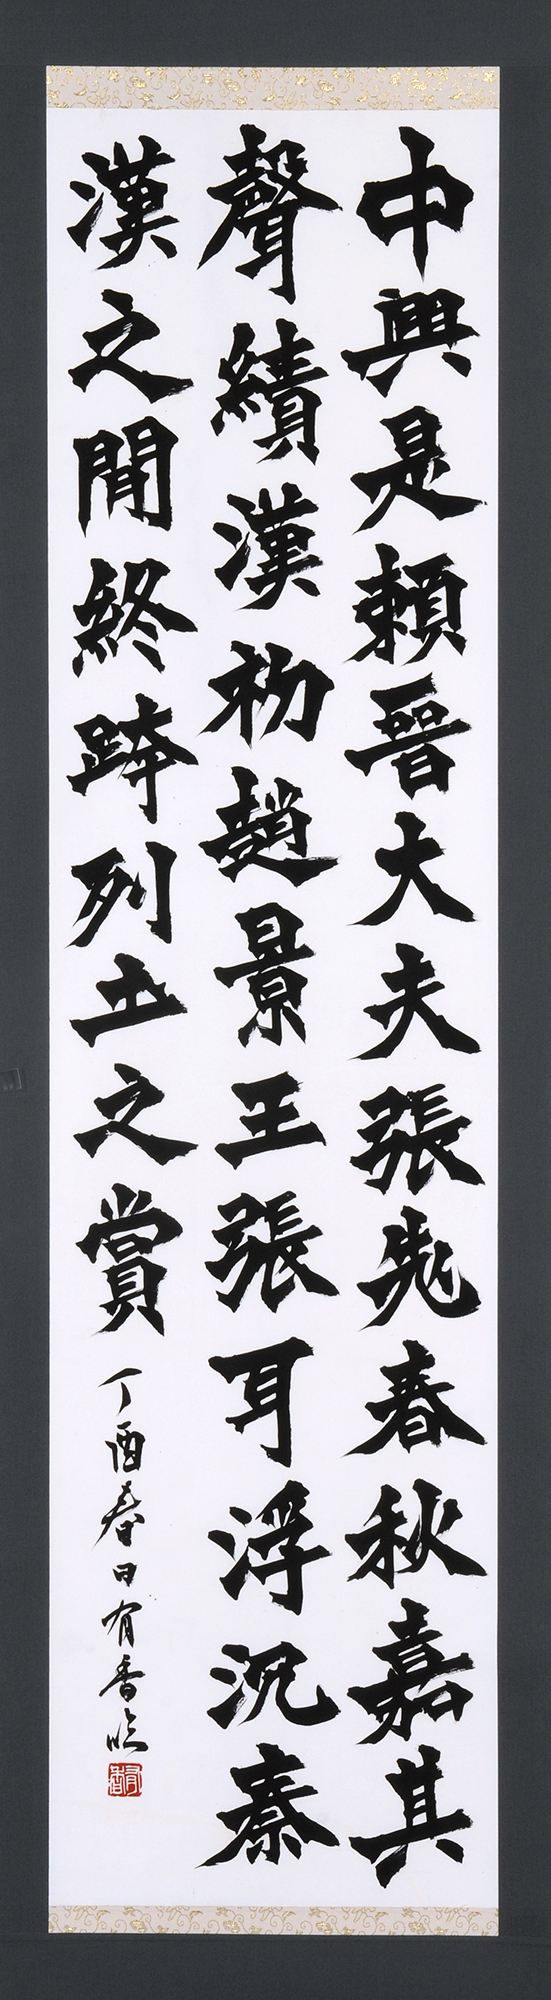 中興是賴晉大夫張老春秋嘉其
聲績漢初趙景王張耳浮沉秦
漢之間終跨列土之賞
丁酉春日有香臨
有香